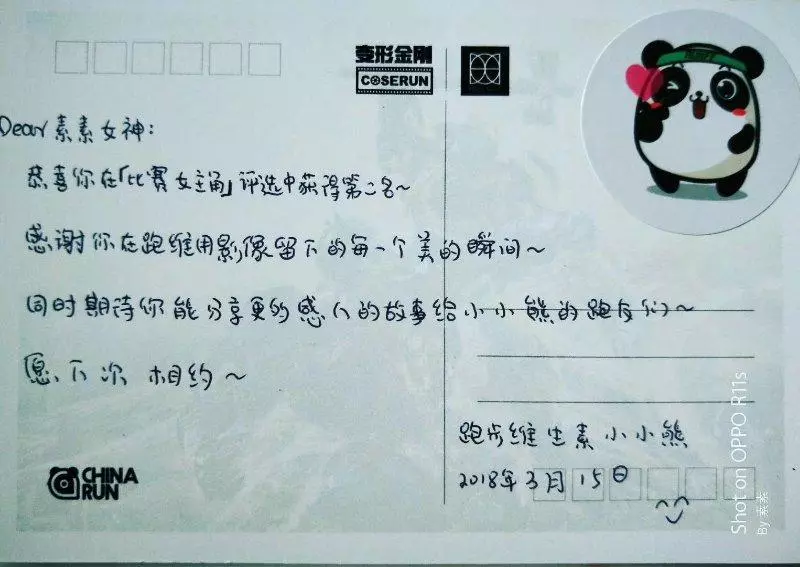 变形金刚
COSERUN
Dear 素素女神:
恭喜你在「比赛女主角」评选中获得第二名~
感谢你在跑维用影像留下的每一个美的瞬间~
同时期待你能分享更的感人的故事给小小熊的跑友们~
愿下次相约~
跑步维生素小小熊
2018年3月15日
CHINA
RUN
Shot on OPPO R11s
By 素素